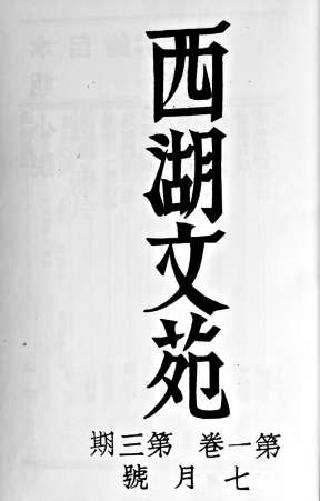 西湖文苑
第一卷 第三期
七月號